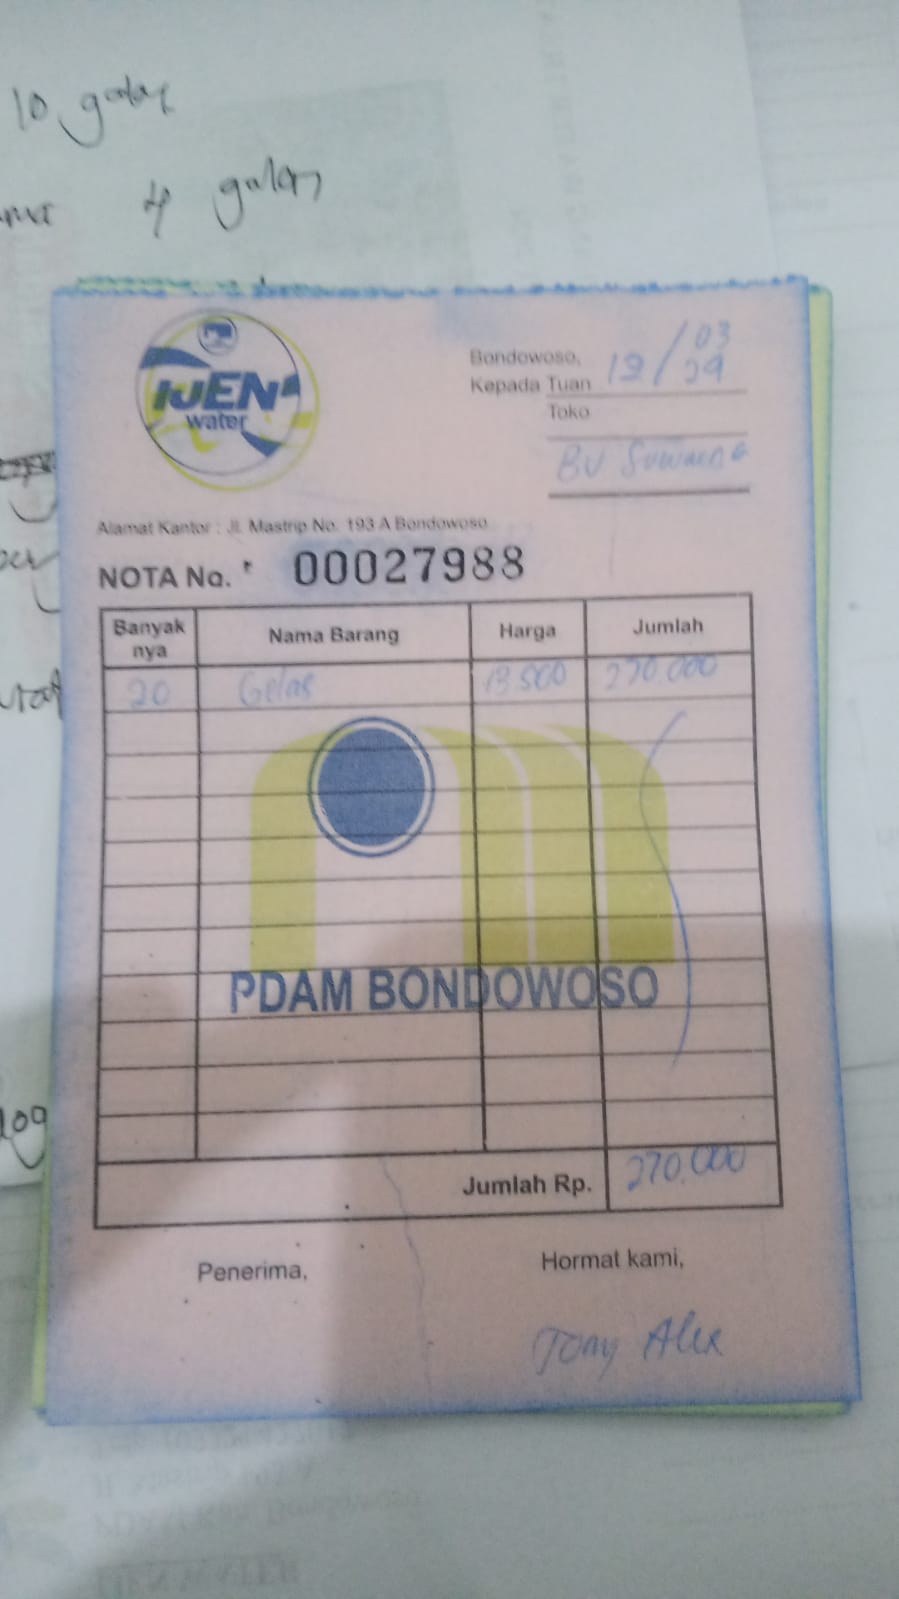 10 galon
4 galon
IJEN
water
Bondowoso, 19/03/29
Kepada Tuan
Toko
BU Suwarno
Alamat Kantor : Jl. Mastrip No. 193 A Bondowoso
NOTA No. 00027988
Banyak nya Nama Barang Harga Jumlah
20 Gelas 13.500 270.000
PDAM BONDOWOSO
Jumlah Rp. 270.000
Penerima, Hormat kami,
Tony Alex